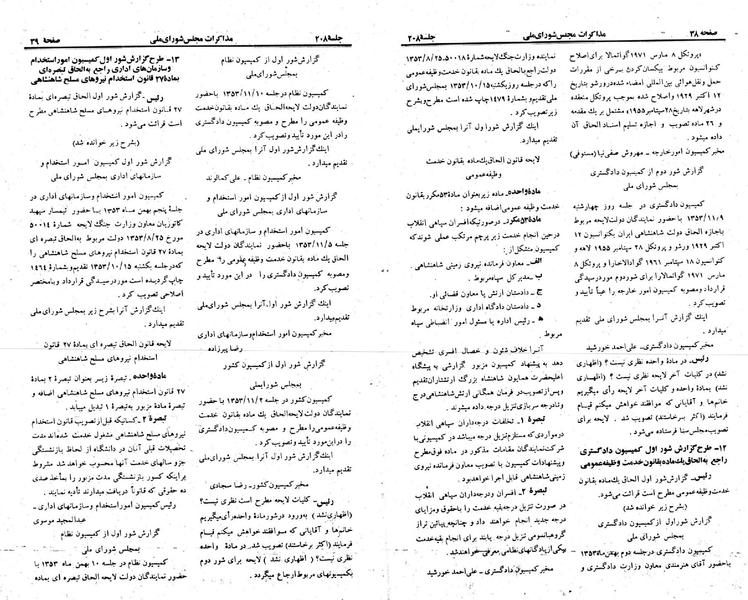 صفحه ۳۸
مذاکرات مجلس شورای ملی
جلسه ۲۰۸
«پروتکل ۸ مارس ۱۹۷۱ گواتمالا برای اصلاح
کنوانسیون مربوط بیکسان کردن برخی از مقررات
حمل و نقل هوائی بین‌المللی امضاء شده در ورشو بتاریخ
۱۲ اکتبر ۱۹۲۹ و اصلاح شده بموجب پروتکل منعقده
در شهر لاهه بتاریخ ۲۸ سپتامبر ۱۹۵۵» مشتمل بر یک مقدمه
و ۲۶ ماده تصویب و اجازه تسلیم اسناد الحاق آن
داده میشود.
مخبر کمیسیون امور خارجه - مهروش صفی‌نیا (مستوفی)
گزارش شور دوم از کمیسیون دادگستری
بمجلس شورای ملی
کمیسیون دادگستری در جلسه روز چهارشنبه
۱۳۵۳/۱۱/۹ با حضور نمایندگان دولت لایحه مربوط
باجازه الحاق دولت شاهنشاهی ایران بکنوانسیون ۱۲
اکتبر ۱۹۲۹ ورشو و پروتکل ۲۸ سپتامبر ۱۹۵۵ لاهه و
کنوانسیون ۱۸ سپتامبر ۱۹۶۱ گوادالاخارا و پروتکل ۸
مارس ۱۹۷۱ گواتمالا را برای شور دوم مورد رسیدگی
قرار داد و مصوبه کمیسیون امور خارجه را عیناً تأیید و
تصویب کرد.
اینک گزارش آنرا بمجلس شورای ملی تقدیم
میدارد.
مخبر کمیسیون دادگستری - علی احمد خورشید
رئیس- در ماده واحده نظری نیست؟ (اظهاری
نشد) در کلیات آخر لایحه نظری نیست؟ (اظهاری
نشد) بماده واحده و کلیات آخر لایحه رأی میگیریم
خانم‌ها و آقایانی که موافقند خواهش میکنم قیام
فرمایند (اکثر برخاستند) تصویب شد. لایحه برای
تصویب مجلس سنا فرستاده میشود.
۱۲- طرح گزارش شور اول کمیسیون دادگستری
راجع به الحاق یک ماده بقانون خدمت وظیفه عمومی
رئیس- گزارش شور اول الحاق یک ماده بقانون
خدمت وظیفه عمومی مطرح است قرائت میشود.
(بشرح زیر خوانده شد)
گزارش شور اول از کمیسیون دادگستری
بمجلس شورای ملی
کمیسیون دادگستری در جلسه دوم بهمن ماه ۱۳۵۳
با حضور آقای هنرمندی معاون وزارت دادگستری و
نماینده وزارت جنگ لایحه شماره ۵۰۰۱۸-۱۳۵۳/۸/۲۵
دولت راجع بالحاق یک ماده بقانون خدمت وظیفه عمومی
را که در جلسه روز یکشنبه ۱۳۵۳/۱۰/۱۵ بمجلس شورای
ملی تقدیم و بشماره ۱۴۷۹ چاپ شده است مطرح و بشرح
زیر تصویب کرد.
اینک گزارش شور اول آنرا بمجلس شورای ملی
تقدیم میدارد.
لایحه قانون الحاق یک ماده بقانون خدمت
وظیفه عمومی
ماده واحده. ماده زیر بعنوان ماده ۵۳ مکرر بقانون
خدمت وظیفه عمومی اضافه میشود:
ماده ۵۳ مکرر- در صورتیکه افسران سپاهی انقلاب
در حین انجام خدمت زیر پرچم مرتکب عملی شوند که
کمیسیون متشکل از:
الف- معاون فرمانده نیروی زمینی شاهنشاهی.
ب- مدیر کل سپاه مربوط.
ج- دادستان ارتش یا معاون قضائی او.
د- دادستان دادگاه اداری وزارتخانه مربوط
ه- رئیس اداره یا مسئول امور انضباطی سپاه
مربوط.
آنرا خلاف شئون و خصال افسری تشخیص
دهد به پیشنهاد کمیسیون مزبور گزارشی به پیشگاه
اعلیحضرت همایون شاهنشاه بزرگ ارتشتاران تقدیم
و پس از تصویب در فرمان همگانی ارتش شاهنشاهی درج
و تا درجه سربازی تنزیل درجه داده میشوند.
تبصره ۱- تخلفات درجه‌داران سپاهی انقلاب
در مواردی که مستلزم تنزیل درجه میباشد در کمیسیونی با
شرکت نمایندگان مقامات مذکور در ماده فوق مطرح
و پیشنهادات کمیسیون با تصویب معاون فرمانده نیروی
زمینی شاهنشاهی قابل اجرا خواهد بود.
تبصره ۲- افسران و درجه‌داران سپاهی انقلاب
در صورت تنزیل درجه بقیه خدمت را با حقوق و مزایای
درجه جدید انجام خواهند داد و چنانچه پائین‌تر از
گروهبان سومی تنزیل درجه یابند برای انجام بقیه خدمت
بیکی از پادگانهای نظامی معرفی خواهند شد.
مخبر کمیسیون دادگستری - علی احمد خورشید
جلسه ۲۰۸
مذاکرات مجلس شورای ملی
صفحه ۳۹
گزارش شور اول از کمیسیون نظام
بمجلس شورای ملی
کمیسیون نظام در جلسه ۱۳۵۳/۱۱/۱۰ با حضور
نمایندگان دولت لایحه الحاق یک ماده بقانون خدمت
وظیفه عمومی را مطرح و مصوبه کمیسیون دادگستری
را در این مورد تأیید و تصویب کرد.
اینک گزارش شور اول آنرا بمجلس شورای ملی
تقدیم میدارد.
مخبر کمیسیون نظام - علی کمالوند
گزارش شور اول از کمیسیون امور استخدام و
سازمانهای اداری بمجلس شورای ملی
کمیسیون امور استخدام و سازمانهای اداری در
جلسه ۱۳۵۳/۱۱/۵ با حضور نمایندگان دولت لایحه
الحاق یک ماده بقانون خدمت وظیفه عمومی را مطرح
و مصوبه کمیسیون دادگستری را در این مورد تأیید و
تصویب کرد.
اینک گزارش شور اول آنرا بمجلس شورای ملی
تقدیم میدارد.
مخبر کمیسیون امور استخدام و سازمانهای اداری
رضا پیرزاده
گزارش شور اول از کمیسیون کشور
بمجلس شورای ملی
کمیسیون کشور در جلسه ۱۳۵۳/۱۱/۲ با حضور
نمایندگان دولت لایحه الحاق یک ماده بقانون خدمت
وظیفه عمومی را مطرح و مصوبه کمیسیون دادگستری
را در این مورد تأیید و تصویب کرد.
اینک گزارش شور اول آنرا بمجلس شورای ملی
تقدیم میدارد.
مخبر کمیسیون کشور - رضا سجادی
رئیس- کلیات لایحه مطرح است نظری نیست؟
(اظهاری نشد) بورود در شور ماده واحده رأی میگیریم
خانم‌ها و آقایانی که موافقند خواهش میکنم قیام
فرمایند (اکثر برخاستند) تصویب شد. در ماده واحده
نظری نیست؟ (اظهاری نشد) لایحه برای شور دوم به
بکمیسیونهای مربوط ارجاع میگردد.
۱۳- طرح گزارش شور اول کمیسیون امور استخدام
و سازمان‌های اداری راجع به الحاق تبصره‌ای
بماده ۲۷ قانون استخدام نیروهای مسلح شاهنشاهی
رئیس- گزارش شور اول الحاق تبصره‌ای بماده
۲۷ قانون استخدام نیروهای مسلح شاهنشاهی مطرح
است قرائت میشود.
(بشرح زیر خوانده شد)
گزارش شور اول کمیسیون امور استخدام و
سازمانهای اداری بمجلس شورای ملی
کمیسیون امور استخدام و سازمانهای اداری در
جلسه پنجم بهمن ماه ۱۳۵۳ با حضور تیمسار سپهبد
کاتوزیان معاون وزارت جنگ لایحه شماره ۵۰۰۱۴
مورخ ۱۳۵۳/۸/۲۵ دولت مربوط به الحاق تبصره‌ای
بماده ۲۷ قانون استخدام نیروهای مسلح شاهنشاهی را
که در جلسه یکشنبه ۱۳۵۳/۱۰/۱۵ تقدیم و بشماره ۱۴۶۴
چاپ گردیده است مورد رسیدگی قرار داد و با مختصر
اصلاحی تصویب کرد.
اینک گزارش شور اول آنرا بشرح زیر بمجلس شورای ملی
تقدیم میدارد.
لایحه قانون الحاق تبصره‌ای بماده ۲۷ قانون
استخدام نیروهای مسلح شاهنشاهی
ماده واحده. تبصره زیر بعنوان تبصره ۲ بماده
۲۷ قانون استخدام نیروهای مسلح شاهنشاهی اضافه و
تبصره ماده مزبور به تبصره ۱ تبدیل میباشد.
تبصره ۲- کسانیکه قبل از تصویب قانون استخدام
نیروهای مسلح شاهنشاهی مشغول خدمت شده‌اند مدت
تحصیلات قبلی آنان در دانشگاه از لحاظ بازنشستگی
جزو سالهای خدمت آنها محسوب خواهد شد مشروط
براینکه کسور بازنشستگی مدت مزبور را بمأخذ صدی
ده حقوقی که قانوناً دریافت میدارند تأدیه نمایند.
رئیس کمیسیون امور استخدام و سازمانهای اداری -
عبدالمجید موسوی
گزارش شور اول از کمیسیون نظام
بمجلس شورای ملی
کمیسیون نظام در جلسه ۱۰ بهمن ماه ۱۳۵۳ با
حضور نمایندگان دولت لایحه الحاق تبصره‌ای بماده